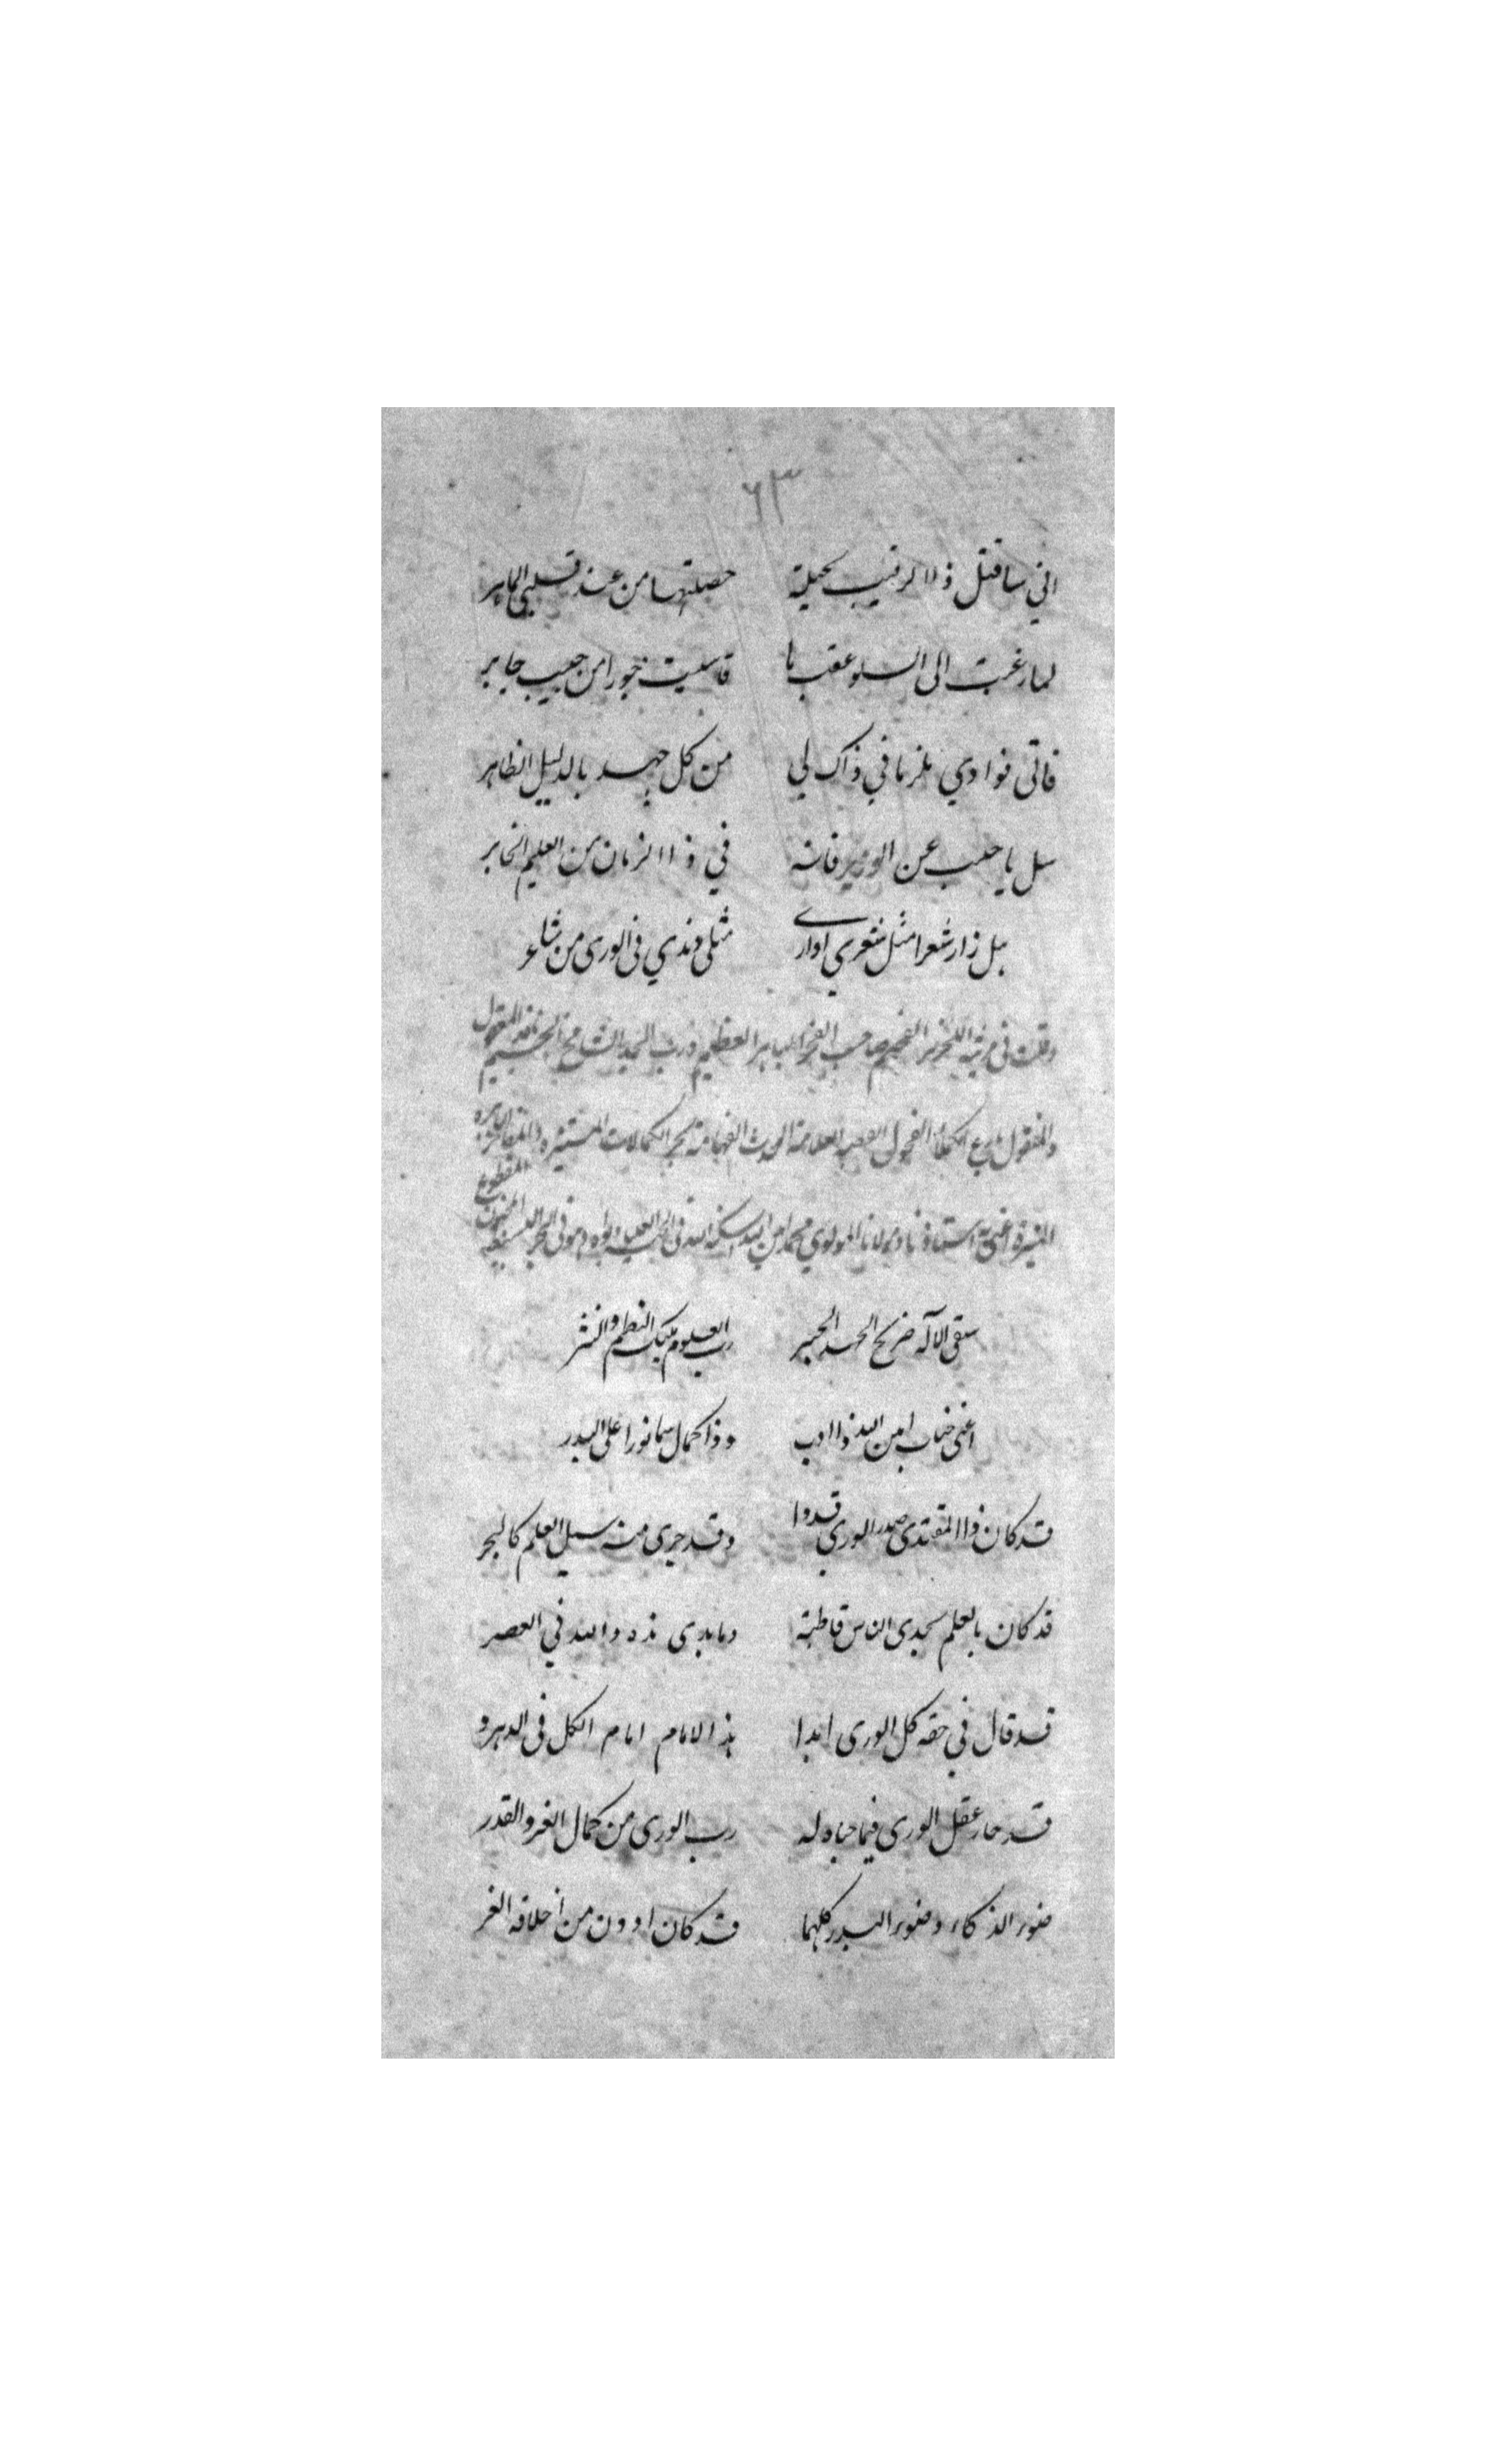 ٦٣
اني ساقتل ذلا لرقيب بحيلة حصلتها من عند قلبي الماهر
لما رغبت الى السلو عقب ما قاسيت جورا من حبيب جابر
فاتى فوادي ملزما في ذاك لي من كل جهد بالدليل الظاهر
سل يا حبيب عن الوزير فانه في ذا الزمان من العليم الخابر
هل زار شعرا مثل شعري او ارى مثلي وندي في الورى من شاعر
وقلت في مرثية النحرير الفخيم صاحب الفخر الباهر العظيم ورب المجد الشامخ الجسيم نافذ المعقول
والمنقول بارع الكملاء الفحول العلامة الفهامة بحر الكمالات المستنيره والمفاخر
المنيرة اعني به استاذنا ومولانا المولوي محمد امين الله اسكنه الله في الجنة العليا وابواه وهو في البحر البسيط المخبون المقطوع
سقى الاله ضريح الجهبذ الحبر رب العلوم مليك النظم والنثر
اعني جناب امين الله ذا ادب وذا كمال سما نورا على البدر
قد كان ذا المقتدى صدر الورى قدوا وقد جرى منه سيل العلم كالبحر
قد كان بالعلم يجدي الناس قاطبة وما بدى نده والله في العصر
قد قال في حقه كل الورى ابدا هذ الامام امام الكل في الدهر و
قد حار عقل الورى فيما حباه له رب الورى من كمال الفخر والقدر
ضوء الذكاء وضوء البدر كلهما قد كان ادون من اخلاقه الغر